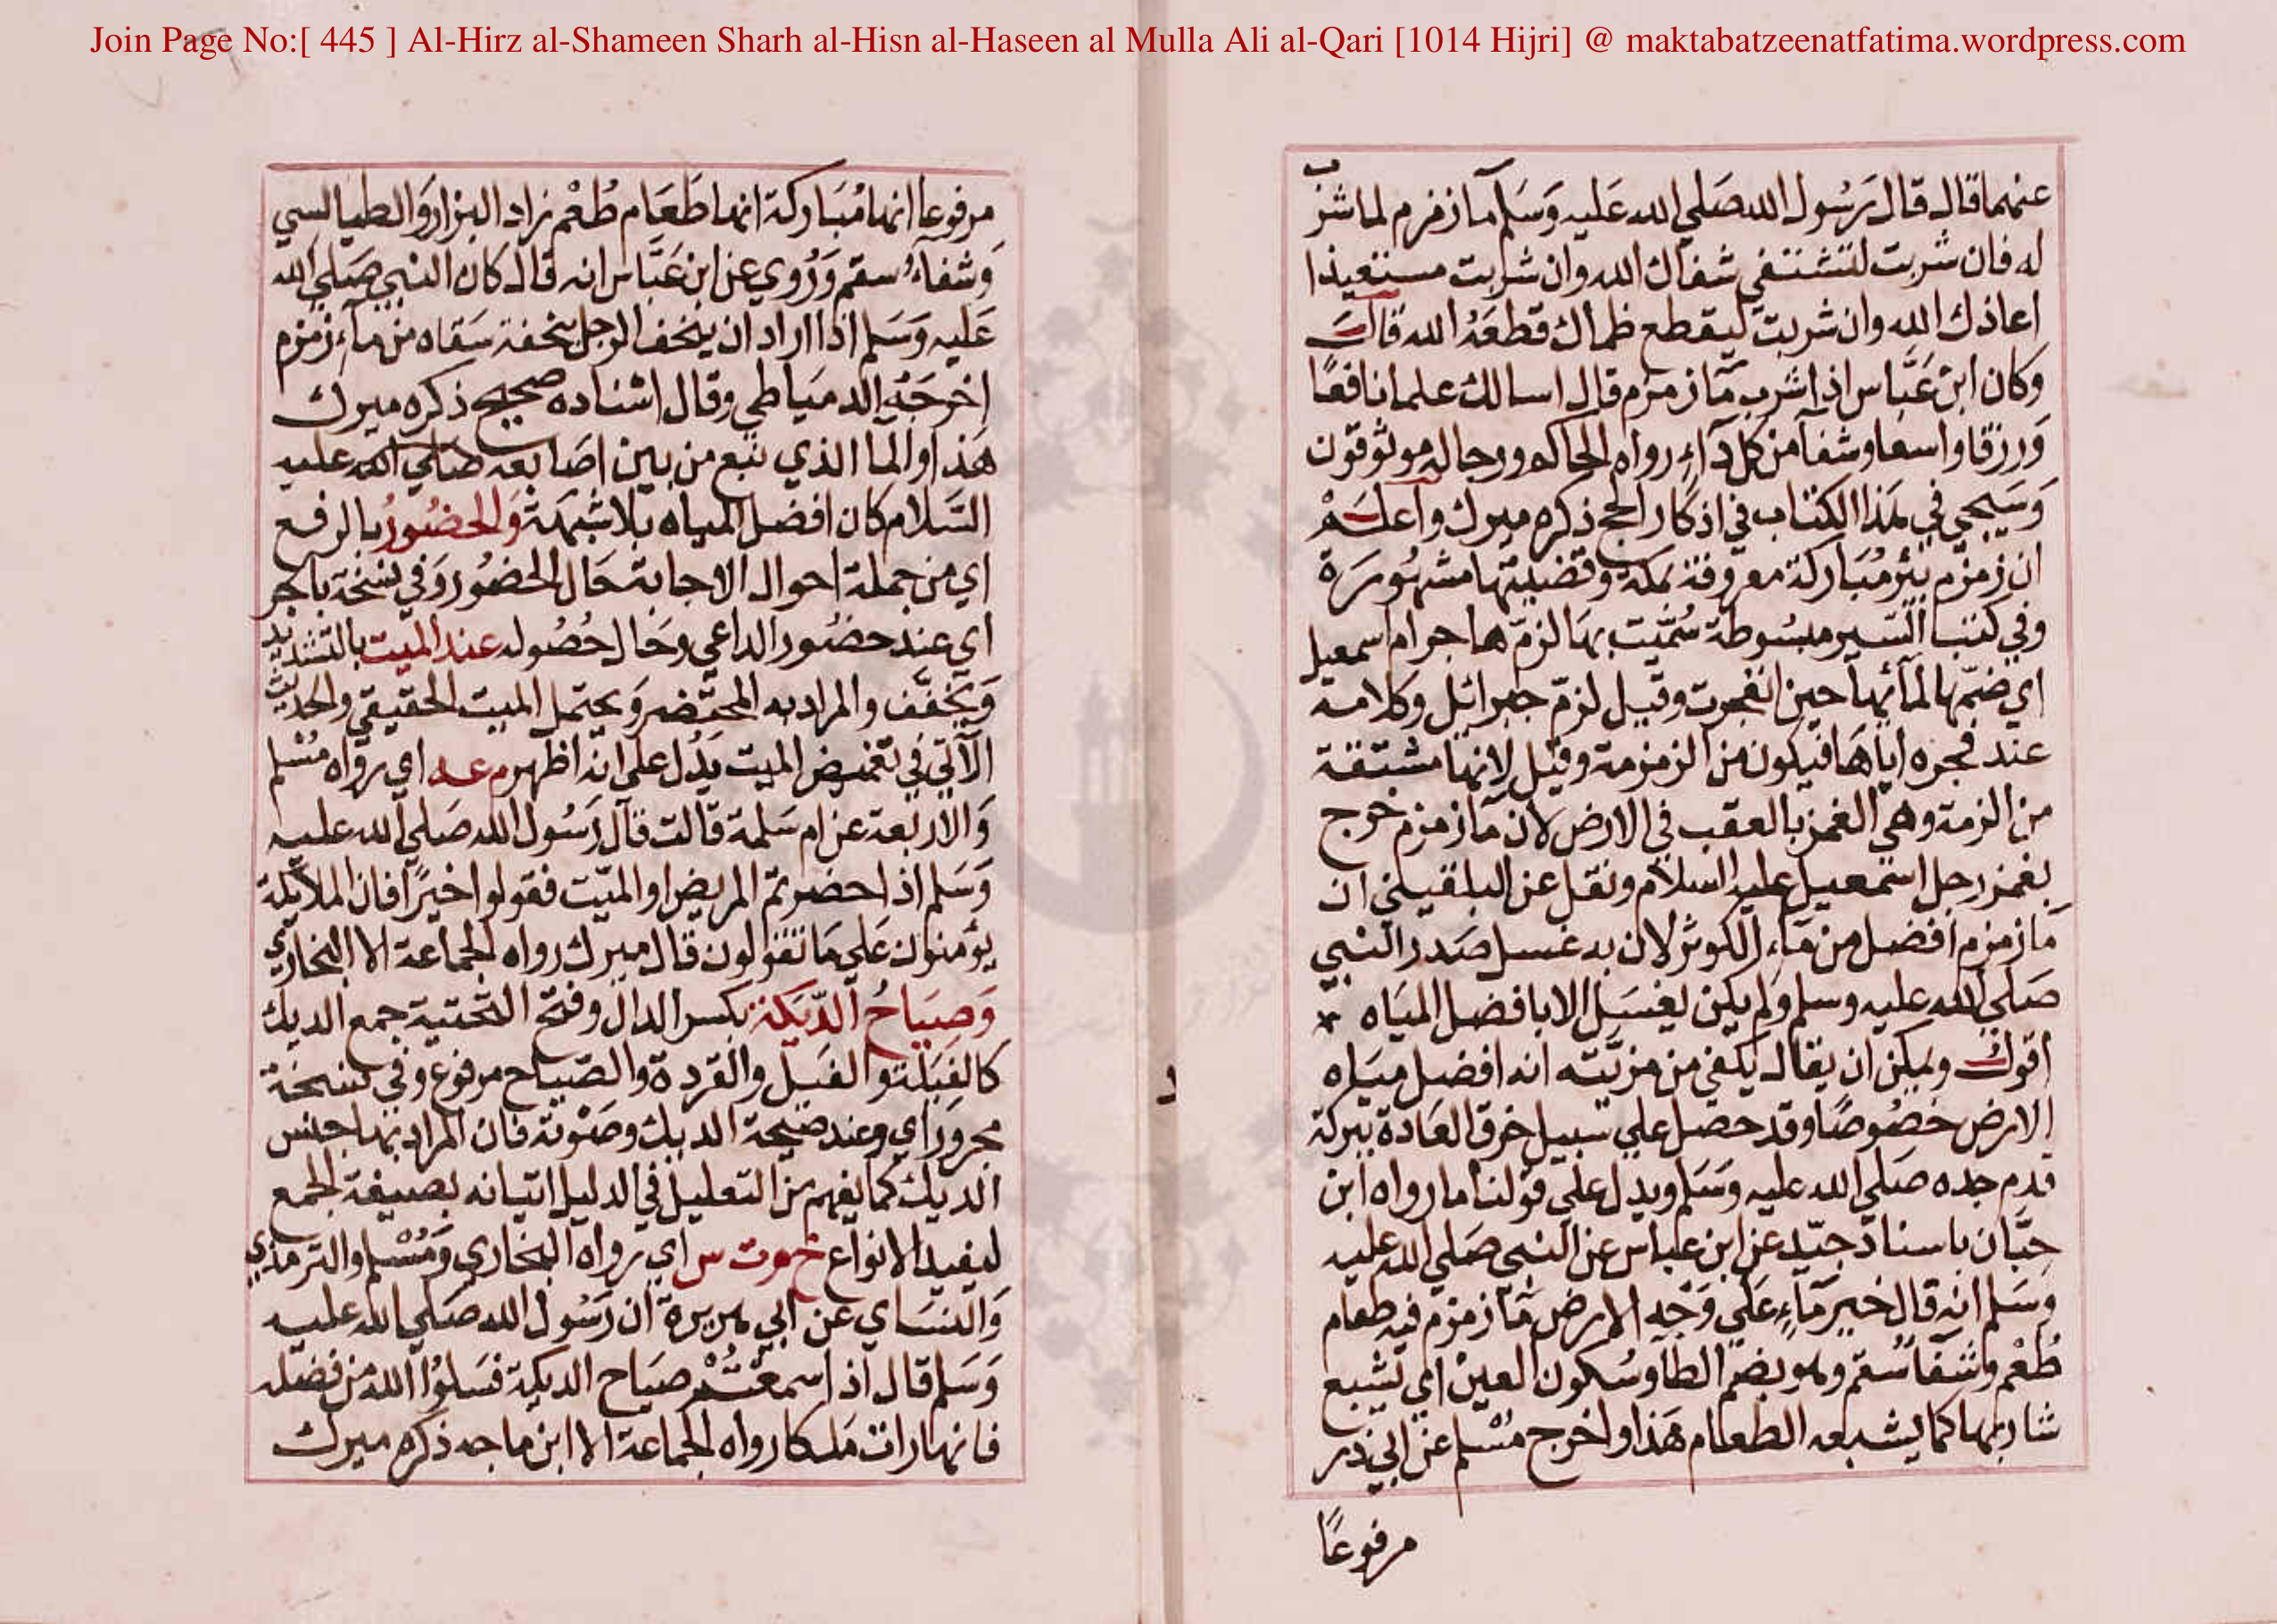 Join Page No:[ 445 ] Al-Hirz al-Shameen Sharh al-Hisn al-Haseen al Mulla Ali al-Qari [1014 Hijri] @ maktabatzeenatfatima.wordpress.com
عنهما قال قال رسول الله صلي الله عليه وسلم ما زمزم لما شرب
له فان شربت لتشتفي شفاك الله وان شربت مستعيذا
اعاذك الله وان شربت ليقطع ظماك قطعه الله قال
وكان ابن عباس اذا شرب ما زمزم قال اسالك علما نافعا
ورزقا واسعا وشفا من كل داء رواه الحاكم ورجاله موثوقون
وسيجي في هذا الكتاب في اذكار الحج ذكره ميرك واعلم
ان زمزم بئر مباركة معروفة بمكة وفضيلتها مشهورة
وفي كتب السير مبسوطة سميت بها لزم هاجر ام اسمعيل
اي ضمها لمائها حين انفجرت وقيل لزم جبرائل وكلامه
عند فجره اياها فيكون من الزمزمة وقيل لانها مشتقة
من الزمة وهي الغمز بالعقب في الارض لان ما زمزم خرج
بغمز رجل اسمعيل عليه السلام ونقل عن البلقيني ان
ما زمزم افضل من ماء الكوثر لان به غسل صدر النبي
صلي الله عليه وسلم ولم يكن ليغسل الا بافضل المياه
اقول ويمكن ان يقال يكفي من مزيته انه افضل مياه
الارض خصوصا وقد حصل علي سبيل خرق العادة ببركة
قدم جده صلي الله عليه وسلم ويدل علي قولنا ما رواه ابن
حبان باسناد جيد عن ابن عباس عن النبي صلي الله عليه
وسلم انه قال خير ماء علي وجه الارض ما زمزم فيه طعام
طعم وشفا سقم وهو بضم الطا وسكون العين اي يشبع
شاربها كما يشبعه الطعام هذا واخرج مسلم عن ابي ذر
مرفوعا
مرفوعا انها مباركة انها طعام طعم زاد البزار والطيالسي
وشفاء سقم وروي عن ابن عباس انه قال كان النبي صلي الله
عليه وسلم اذا اراد ان يتحف الرجل بتحفة سقاه من ماء زمزم
اخرجه الدمياطي وقال اسناده صحيح ذكره ميرك
هذا والما الذي نبع من بين اصابعه صلي الله عليه
السلام كان افضل المياه بلا شبهة والحضور بالرفع
اي من جملة احوال الاجابة حال الحضور وفي نسخة بالجر
اي عند حضور الداعي وحال حصوله عند الميت بالتشديد
ويخفف والمراد به المحتضر ويحتمل الميت الحقيقي والحديث
الآتي في تغميض الميت يدل علي انه اظهر م عه اي رواه مسلم
والاربعة عن ام سلمة قالت قال رسول الله صلي الله عليه
وسلم اذا حضرتم المريض او الميت فقولوا خيرا فان الملائكة
يؤمنون علي ما تقولون قال ميرك رواه الجماعة الا البخاري
وصياح الديكة بكسر الدال وفتح التحتية جمع الديك
كالفيلة والفيل والقردة والصياح مرفوع وفي نسخة
مجرور اي وعند صيحة الديك وصوته فان المراد بها جنس
الديك كما يفهم من التعليل في الدليل اتيانه بصيغة الجمع
ليفيد الانواع خ م ت س اي رواه البخاري ومسلم والترمذي
والنساي عن ابي هريرة ان رسول الله صلي الله عليه
وسلم قال اذا سمعتم صياح الديكة فسلوا الله من فضله
فانها رات ملكا رواه الجماعة الا ابن ماجه ذكره ميرك